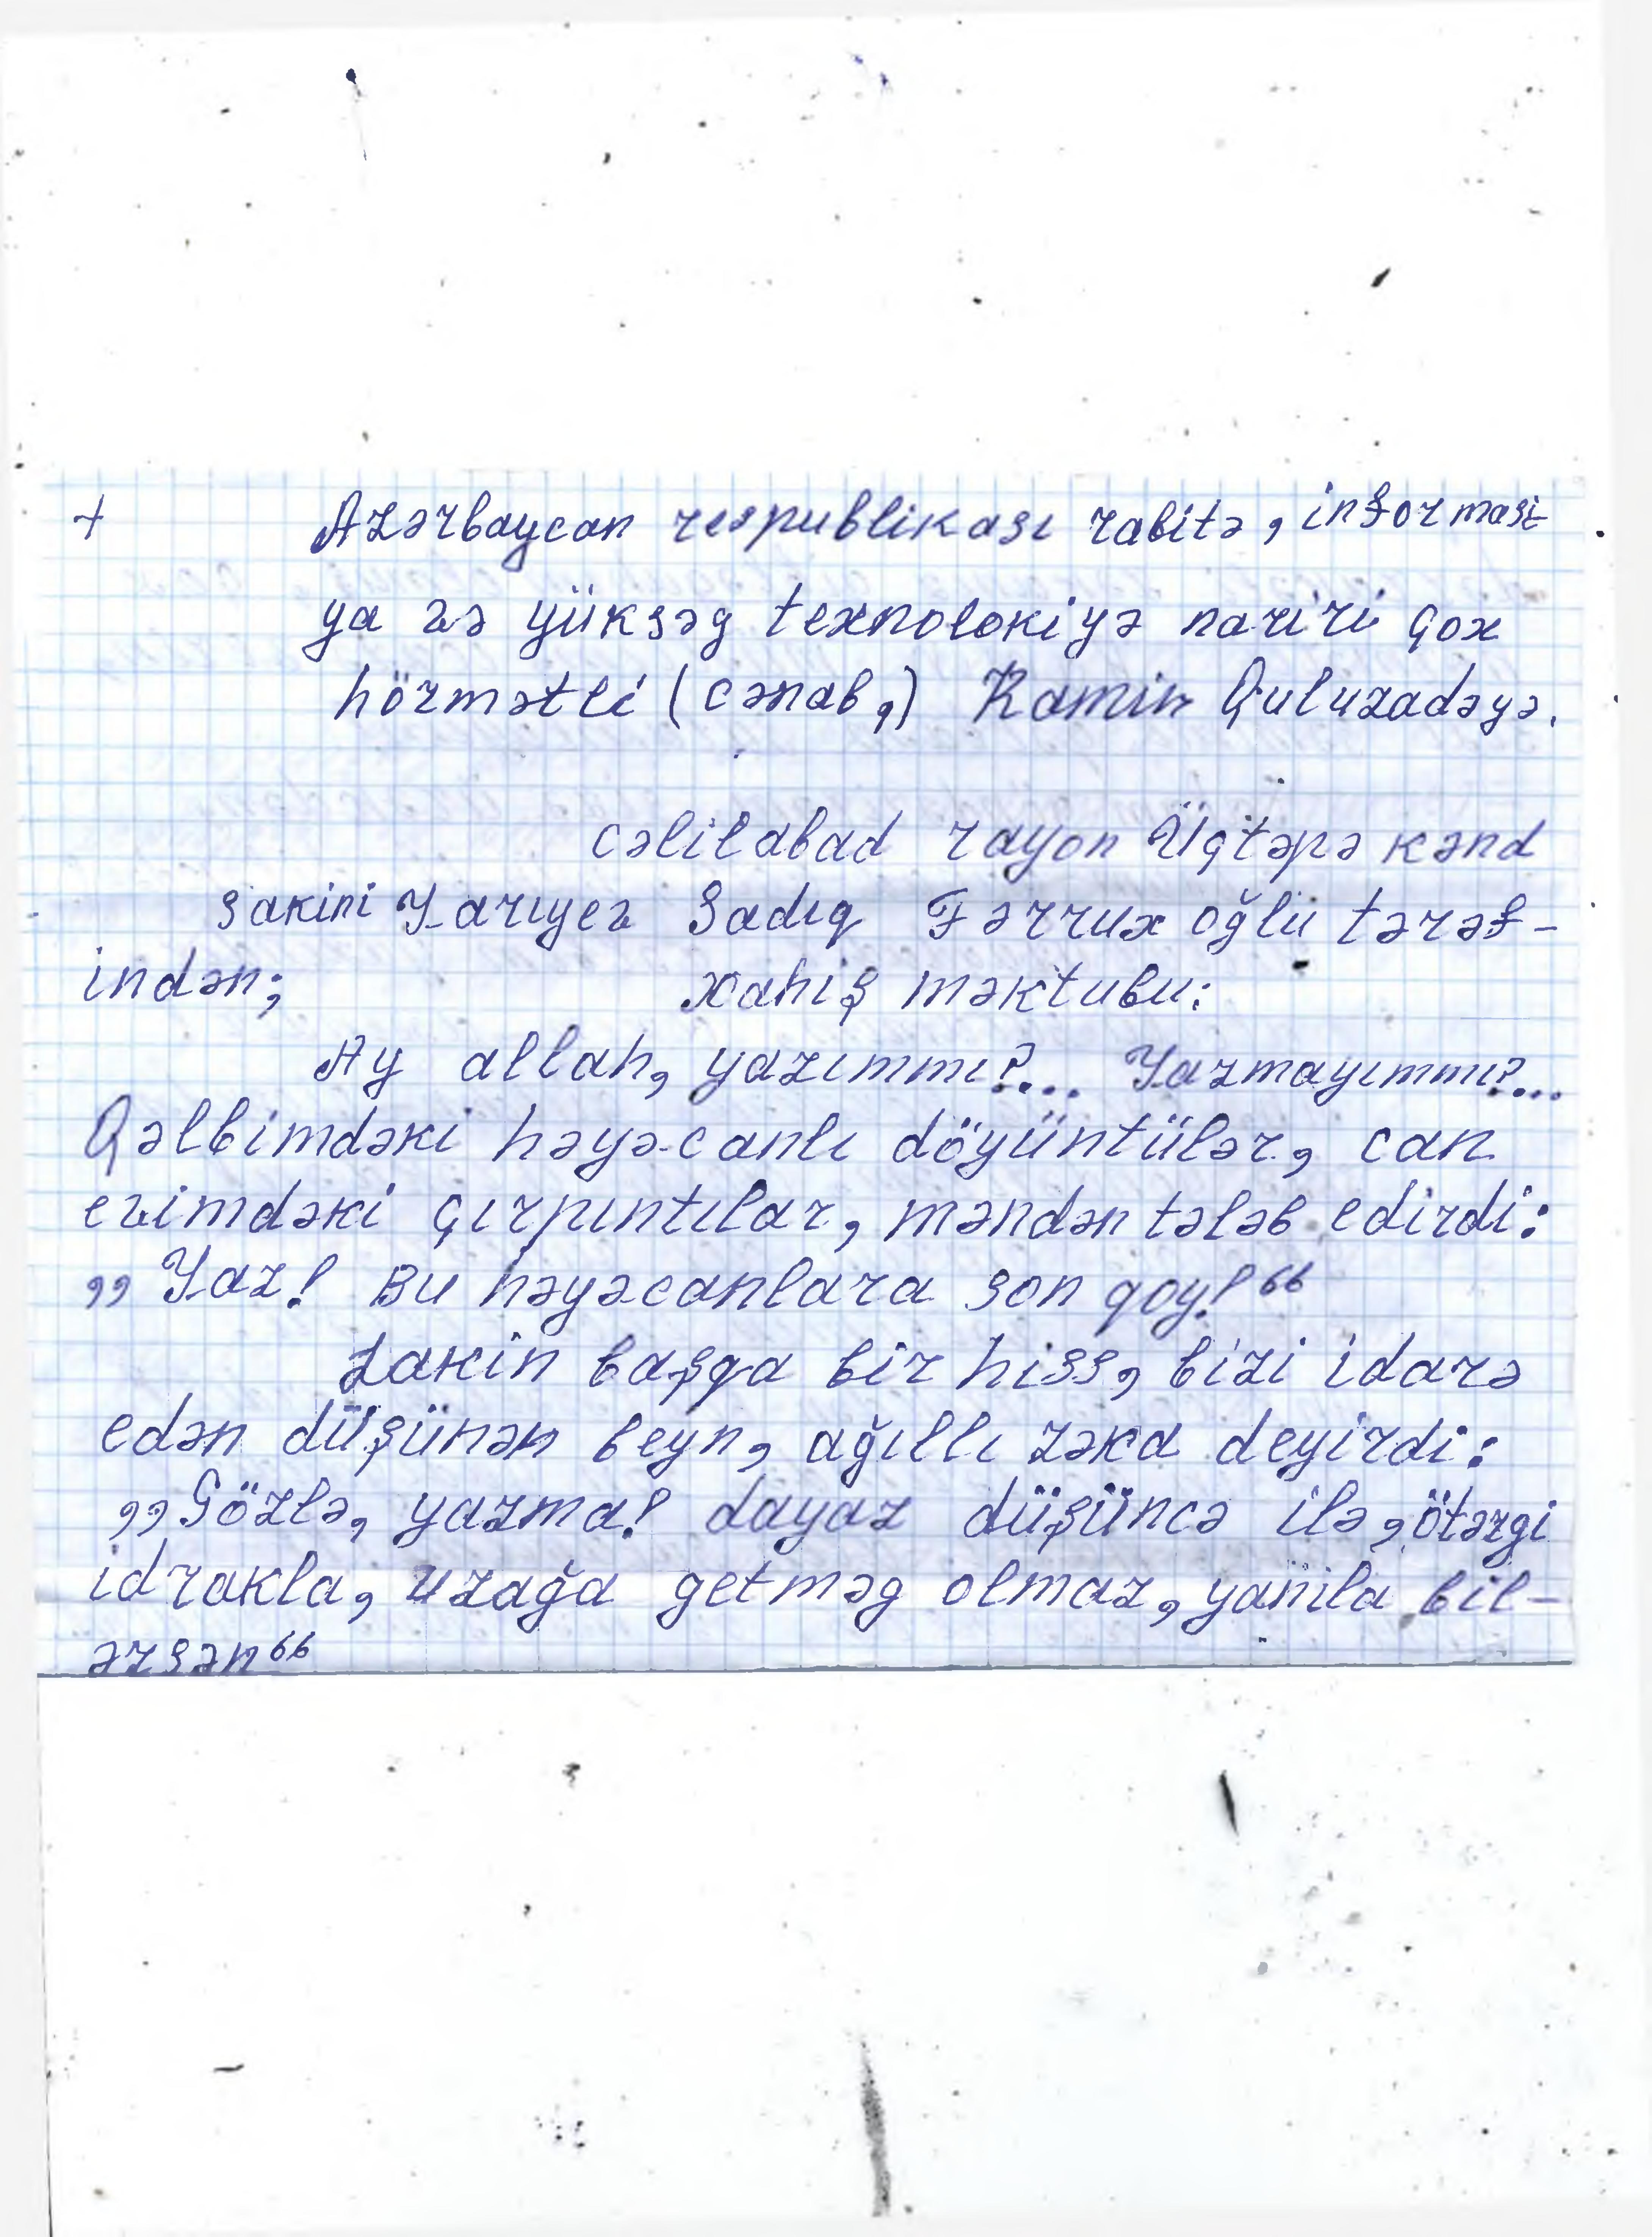 + Azərbaycan respublikası rabitə, informasi-
ya və yüksəg texnolokiya naziri çox
hörmətli (cənab,) Ramin Quluzadəyə.
Cəlilabad rayon Üçtəpə kənd
sakini Yarıyev Sadıq Fərrux oğlu tərəf-
indən;
xahiş məktubu:
Ay allah, yazımmı?... Yazmayımmı?...
Qəlbimdəki həyəcanlı döyüntülər, can
evimdəki çırpıntılar, məndən tələb edirdi:
,,Yaz! Bu həyəcanlara son qoy!“
Lakin başqa bir hiss, bizi idarə
edən düşünən beyn, ağıllı zəka deyirdi:
,,Gözlə, yazma! dayaz düşüncə ilə, ötərgi
idrakla, uzağa getməg olmaz, yanıla bil-
ərsən“